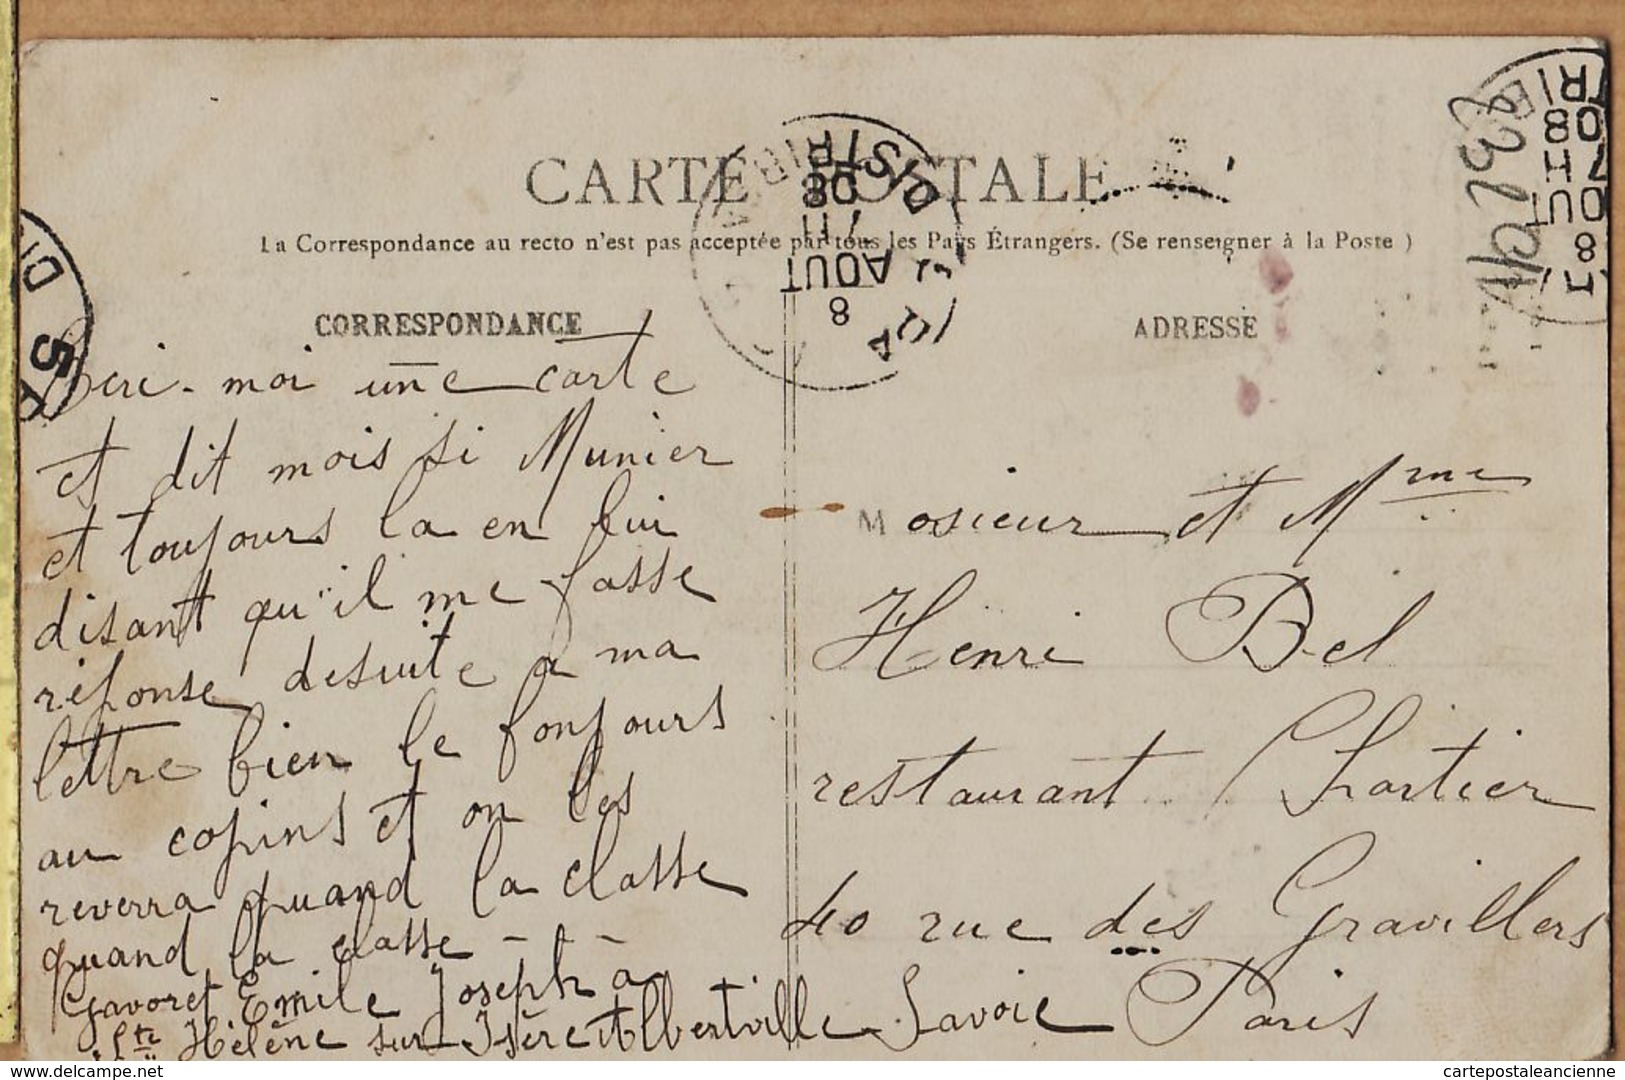 CARTE POSTALE
La Correspondance au recto n'est pas acceptée par tous les Pays Étrangers. (Se renseigner à la Poste )
CORRESPONDANCE
ecri-moi une carte
et dit mois si Munier
et toujours la en lui
disant qu'il me fasse
réponse desuite a ma
lettre bien le bonjours
au copins et on les
reverra quand la classe
quand la classe - -
Gavoret Emile Joseph a
Ste Hélène sur Isère Albertville Savoie
ADRESSE
Mosieur et Mme
Henri Bel
restaurant Chartier
40 rue des Gravillers
Paris
DISTRIB
08
7 H
8 AOUT
TRI
08
7 H
8 AOUT
delcampe.net
cartepostaleancienne